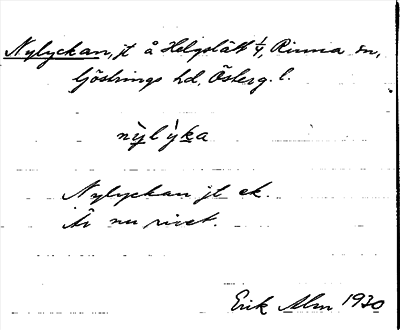 Nylyckan, jt å Helgslätt 1/4, Rinna sn,
Göstrings hd, Österg. l.
nỳlyka
Nylyckan jt ek.
Är nu rivet.
Erik Alm 1930